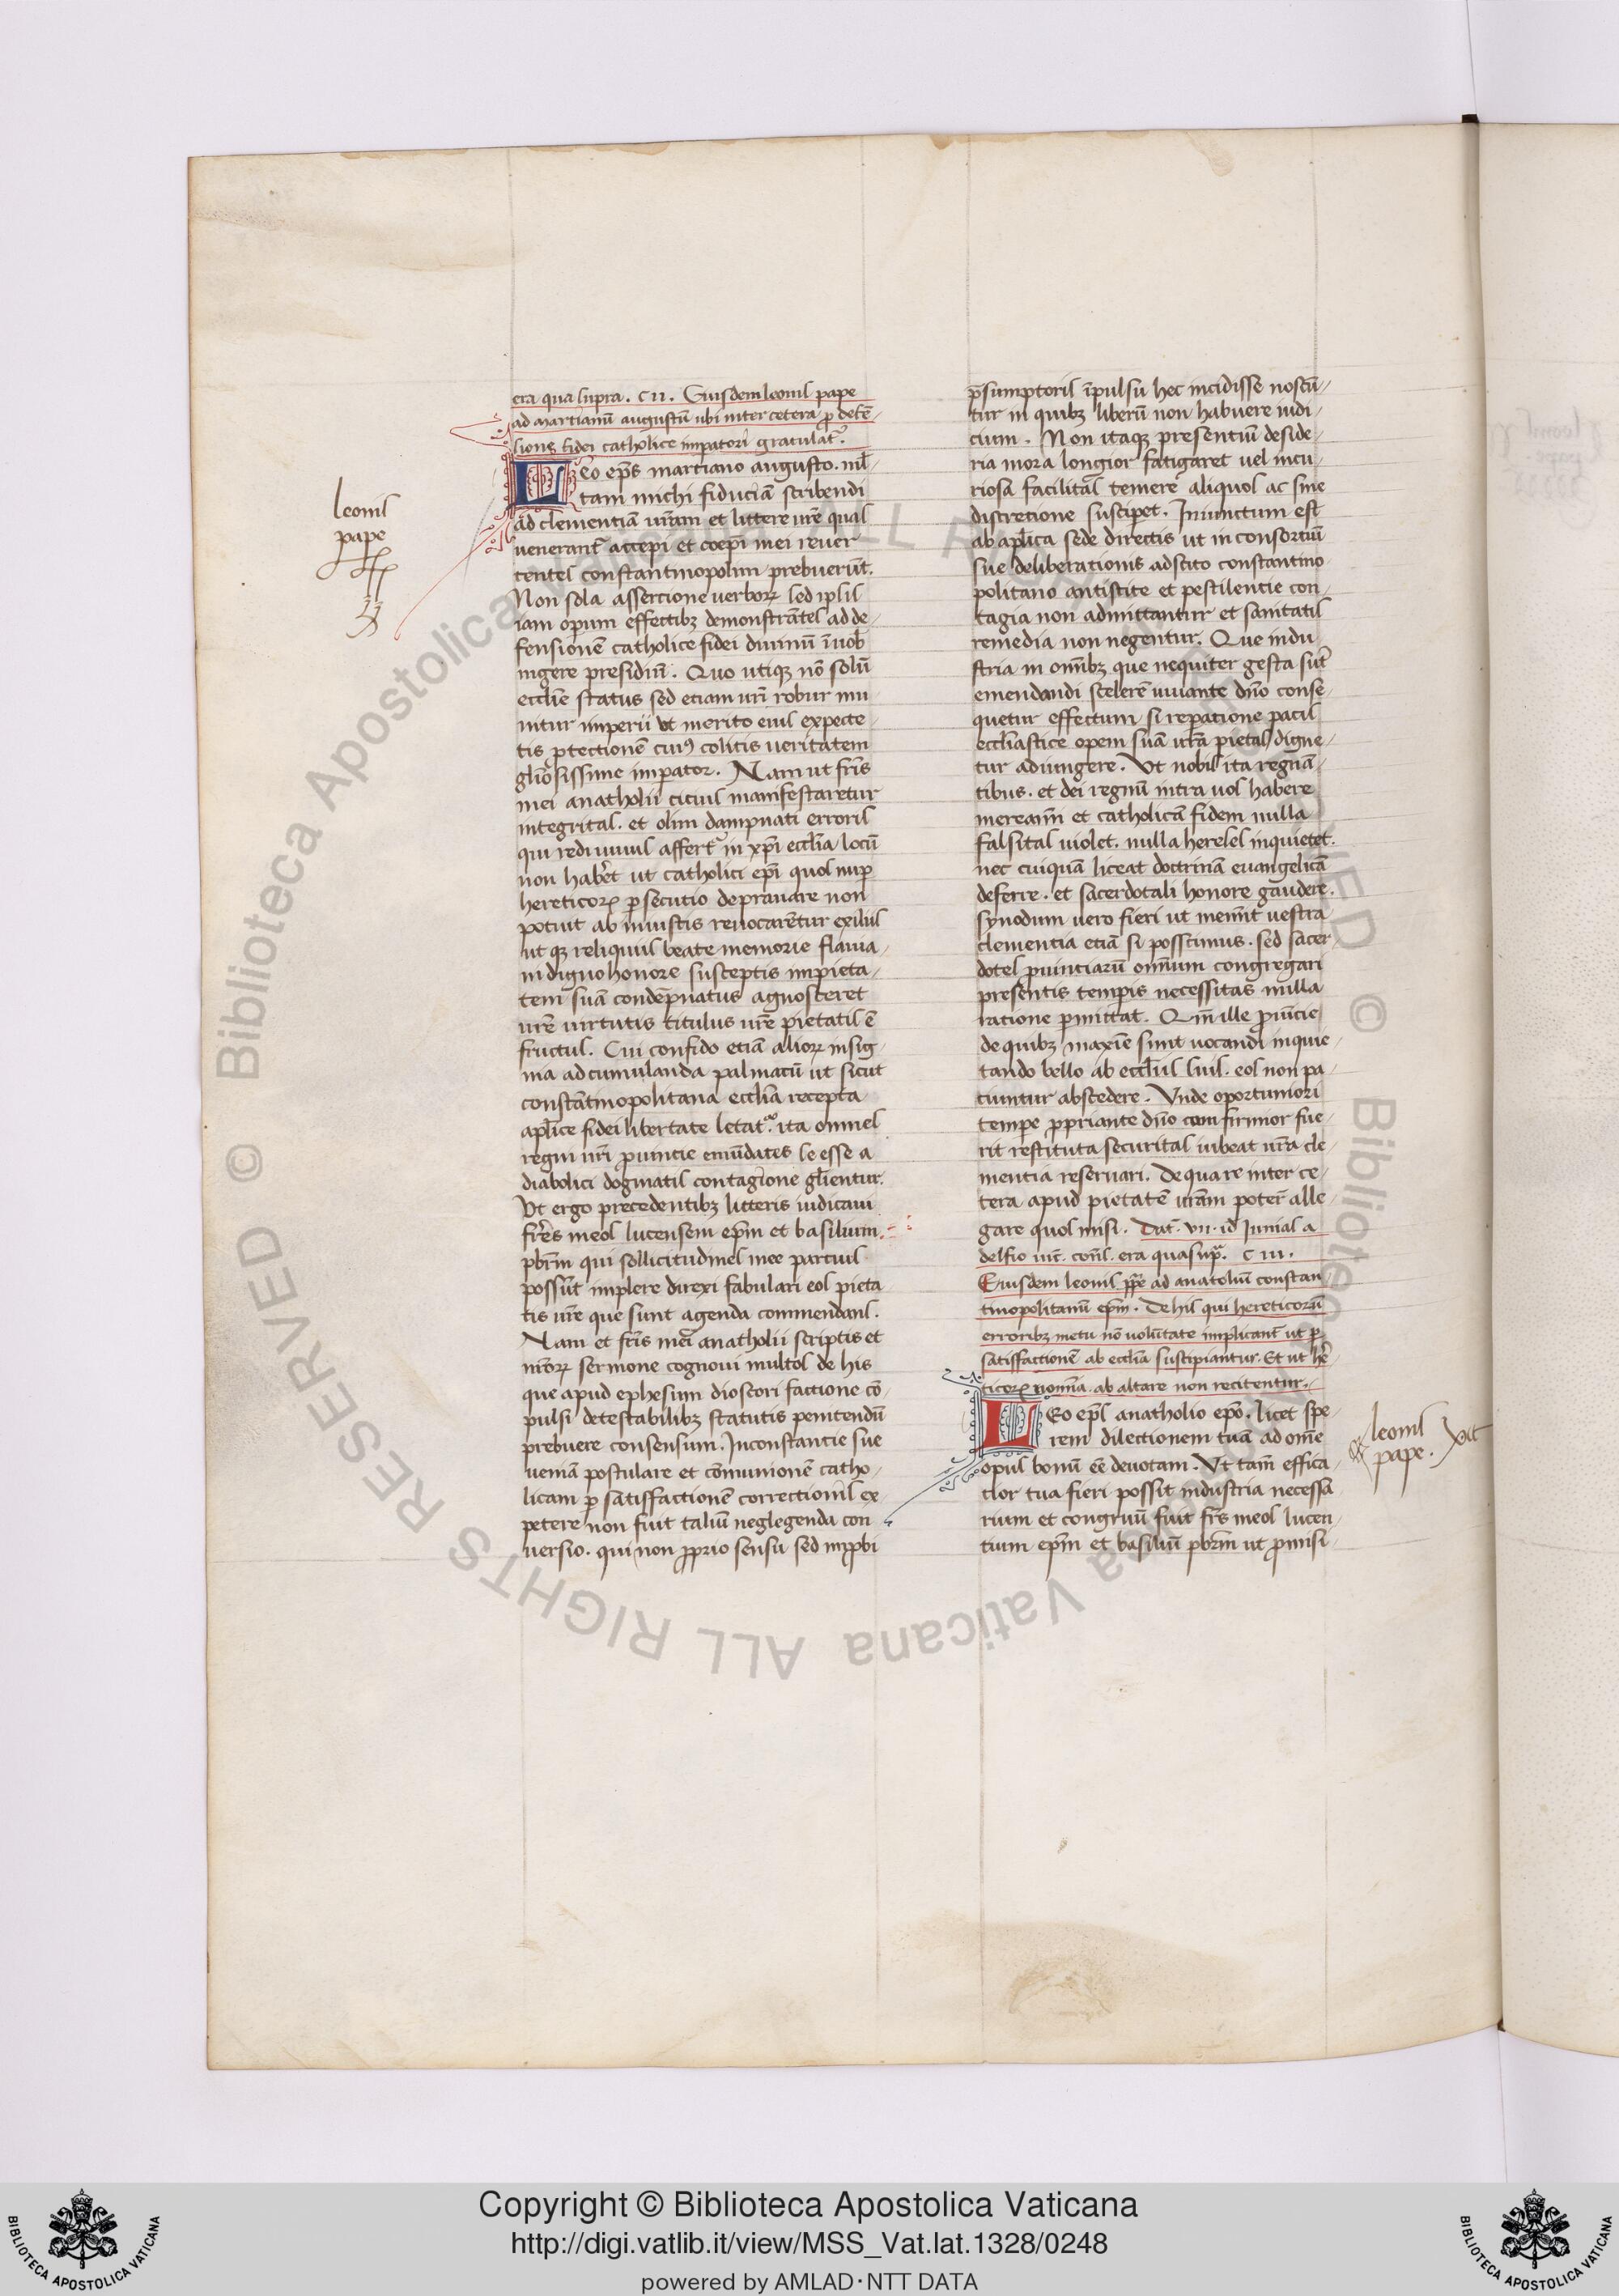 era qua supra. CII. Eiusdem leonis pape
ad martianū augustū ubi inter cetera p̱ defē-
sione fidei catholice impatori gratulat᷑.
Leo ep̄s martiano augusto. ml̄-
tam michi fiduciā scribendi
ad clementiā ur̄am et littere ur̄e quas
uenerant᷑ accepi et coep̄i mei reuer
tentes constantinopolim prebuerūt.
Non sola assertione uerboꝝ sed ipsis
iam operum effectibꝫ demonstrātes ad de-
fensionē catholice fidei diuinū ī uob̄
uigere presidiū. Quo utiqꝫ nō solū
eccl̄ie status sed etiam ur̄i robur mu
nitur imperii ut merito eius expecte-
tis ptectionē cuiꝰ colitis ueritatem
gliosissime impator. Nam ut fr̄is
mei anatholii ciciuis manifestaretur
integritas. et olim dampnati erroris
qui rediuiuus affert᷑ in xp̄i eccl̄ia locū
non hab̄et ut catholici ep̄i quos nup
hereticoꝝ psecutio deprauare non
potuit ab iniustis reuocarētur exiliis
ut qꝫ reliquiis beate memorie flauia-
ni digno honore susceptis impieta-
tem suā condēpnatus agnosceret
ur̄e uirtutis titulus ur̄e pietatis ē
fructus. Cui confido etiā alioꝝ insig-
nia ad cumulanda palmacū ut sicut
constātinopolitana eccl̄ia recepta
apl̄ice fidei libertate letat᷑. ita omnes
regni ur̄i puincie emūdates se esse a
diabolici dogmatis contagione gl̄ientur.
Ut ergo precedentibꝫ litteris iudicaui
fr̄es meos lucensem ep̄m et basilium
pb̄rm qui sollicitudines mee partius
possūt implere direxi fabulari eos pieta
tis ur̄e que sunt agenda commendans.
Nam et fr̄is mei anatholii scriptis et
nr̄oꝝ sermone cognoui multos de his
que apud ephesum dioscori factione cō-
pulsi detestabilibꝫ statutis penitendū
prebuere consensum. Inconstantie sue
ueniā postulare et cōmunionē catho-
licam p satisfactionē correctionis ex-
petere non fuit taliū neglegenda con
uersio. qui non pprio sensu sed improbi
p̄sumptoris īpulsu hec incidisse noscū-
tur in quibꝫ liberū non habuere iudi-
cium. Non itaqꝫ presentiū deside-
ria mora longior fatigaret uel incu-
riosa facilitas temere aliquos ac sine
discretione susciperet. Iniunctum est
ab apl̄ica sede directis ut in consortiū
sue deliberationis adscito constantino
politano antistite et pestilentie con
tagia non admittantur et sanitatis
remedia non negentur. Que indu-
stria in omībꝫ que nequiter gesta sūt
emendandi scelerē iuuante dn̄o conse-
quetur effectum si repatione pacis
eccl̄iastice opem suā ur̄a pietas digne-
tur adiungere. Ut nobis ita regnā-
tibus. et dei regnū intra uos habere
mereamī et catholicā fidem nulla
falsitas uiolet. nulla hereses inquietet.
nec cuiquā liceat doctrinā euangelicā
deferre. et sacerdotali honore gaudere.
synodum uero fieri ut memīt uestra
clementia etiā si poscimus. sed sacer-
dotes puinciarū omīum congregari
presentis temporis necessitas nulla
ratione pmittat. Qm̄ ille prouīcie
de quibꝫ maxīe sunt uocandi inquie-
tando bello ab eccl̄iis suis. eos non pa-
tiuntur abscedere. Unde oportuniori
tempe ppriante dn̄o cum firmior fue-
rit restituta securitas iubeat ur̄a cle-
mentia reseruari. De qua re inter ce-
tera apud pietatē ur̄am poterit alle-
gare quos misi. Dat̄. VII. id Iunias a
delfio uic̄. cons̄. era qua sup̄. CIII.
Eiusdem leonis pp̄e ad anatoliū constan-
tinopolitanū ep̄m. De his qui hereticorū
erroribꝫ metu nō uolūtate implicant᷑ ut p
satisfactionē ab eccl̄ia suscipiantur. Et ut her̄e-
ticoꝝ nomīa. ab altare non recitentur.
Leo ep̄s anatholio ep̄o. licet spe-
rem dilectionem tuā ad omē
opus bonū eē deuotam. Ut tam̄ effica-
cior tua fieri possit industria necessa
rium et congruū fuit fr̄s meos lucen-
tium ep̄m et basiliū pb̄rm ut promisi-
leonis
pape
leonis
pape. XII
© Biblioteca Apostolica Vaticana ALL RIGHTS RESERVED
Copyright © Biblioteca Apostolica Vaticana
http://digi.vatlib.it/view/MSS_Vat.lat.1328/0248
powered by AMLAD·NTT DATA
BIBLIOTECA APOSTOLICA VATICANA
BIBLIOTECA APOSTOLICA VATICANA